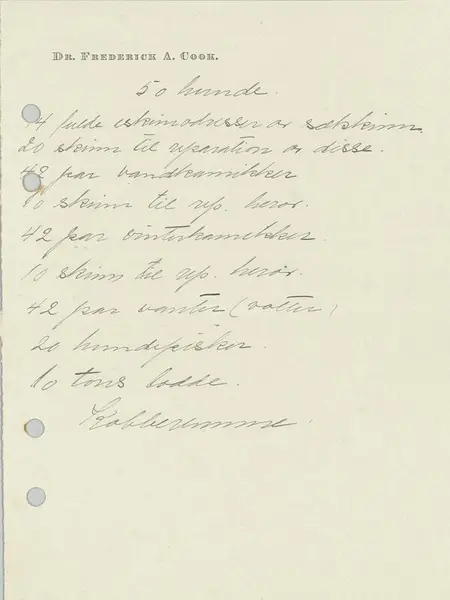 DR. FREDERICK A. COOK.
50 hunde.
14 fulde eskimodresser av sælskinn
20 skinn til reparation av disse.
42 par vandkamikker
10 skinn til rep. herav.
42 par vinterkamikker.
10 skinn til rep. herav.
42 par vanter (votter)
20 hundepisker.
10 tons lodde.